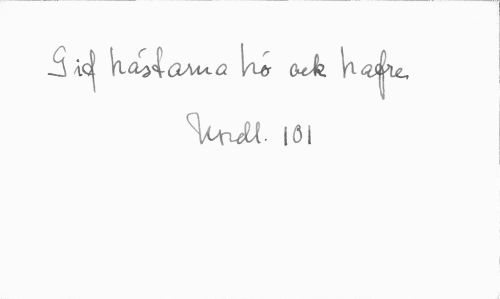 Gif hästarna hö ock hafre
Undl. 101